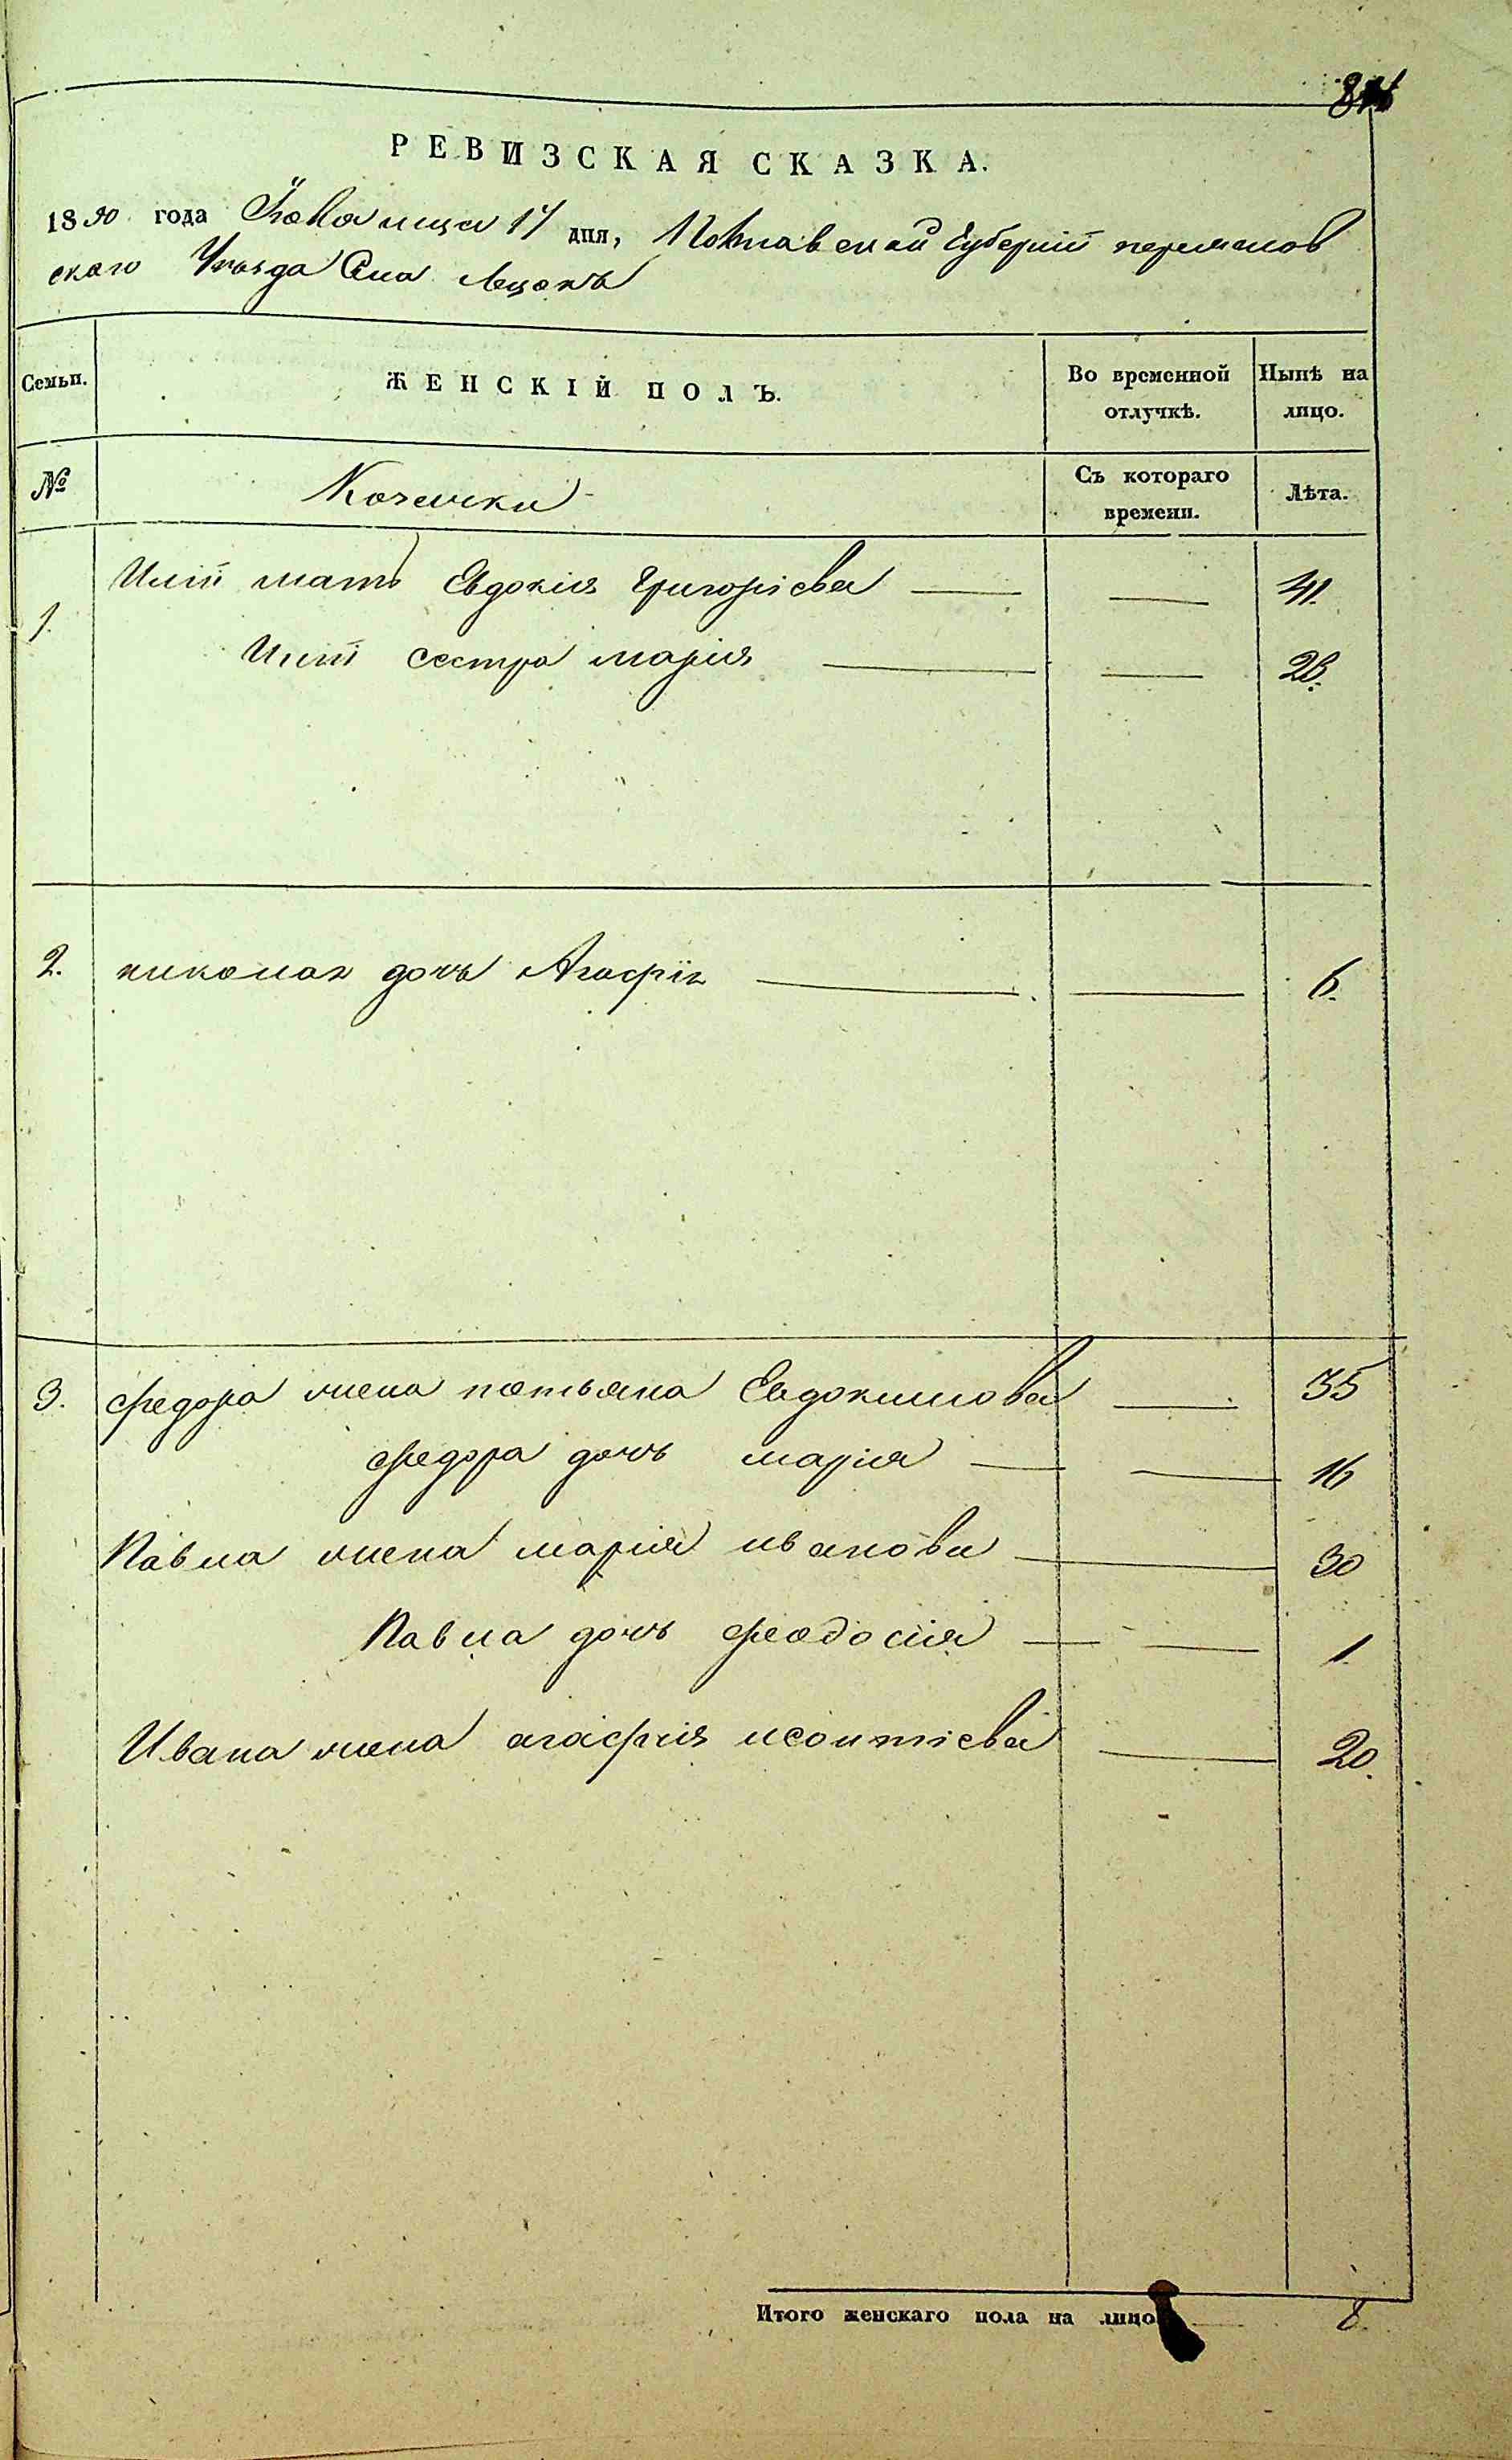 РЕВИЗСКАЯ СКАЗКА.
1850 года мца 17 дня, Полтавской Губерніи переяслов
скаго Уѣзда Села Лецокъ
Семьи. ЖЕНСКІЙ ПОЛЪ. Во временной отлучкѣ. Нынѣ на лицо.
№ Козачки Съ котораго времени. Лѣта.
1. Иліи мать Евдокія Григоріева — — 41.
Иліи сестра марія — — 28.
2. николая дочь Агафія — — 6.
3. федора жена татьяна Евдокимова — 35
федора дочь марія — — 16
Павла жена марія иванова — 30
Павла дочь феодосія — — 1.
Ивана жена агафія леонтіева — 20.
Итого женскаго пола на лицо 8.